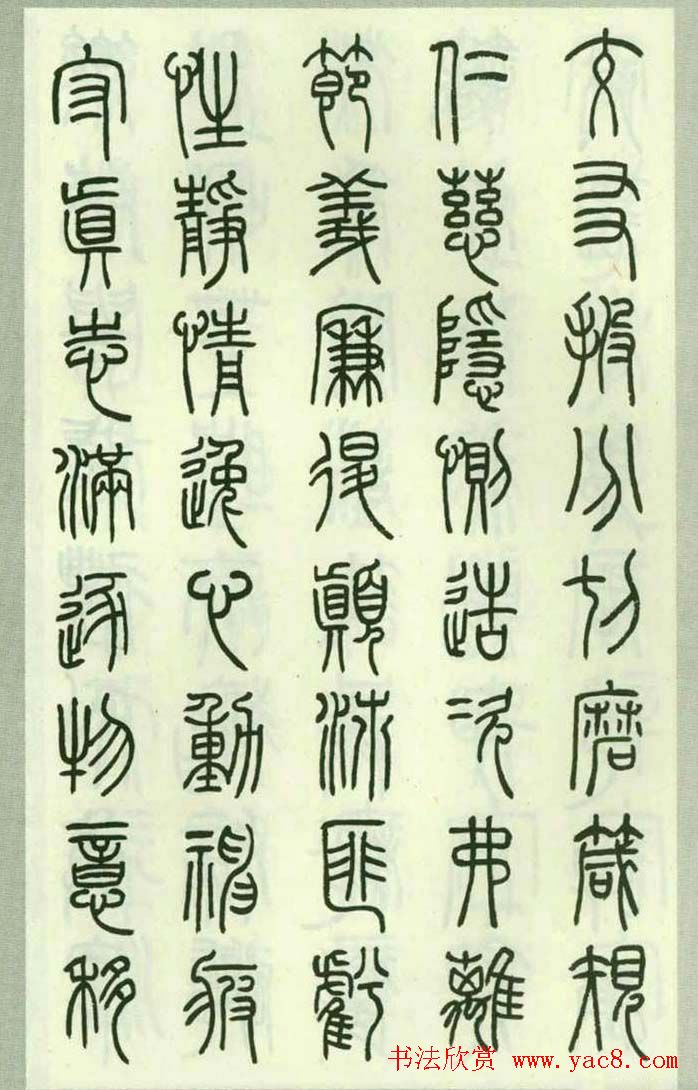 交友投分切磨箴規
仁慈隱惻造次弗離
節義廉退顛沛匪虧
性靜情逸心動神疲
守眞志滿逐物意移
书法欣赏 www.yac8.com